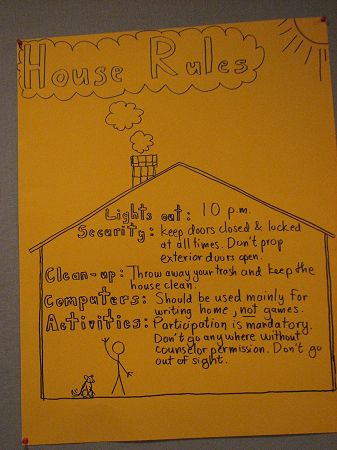 House Rules
Lights out: 10 p.m.
Security: keep doors closed & locked
at all times. Don't prop
exterior doors open.
Clean-up: Throw away your trash and keep the
house clean.
Computers: Should be used mainly for
writing home, not games.
Activities: Participation is mandatory.
Don't go anywhere without
counselor permission. Don't go
out of sight.